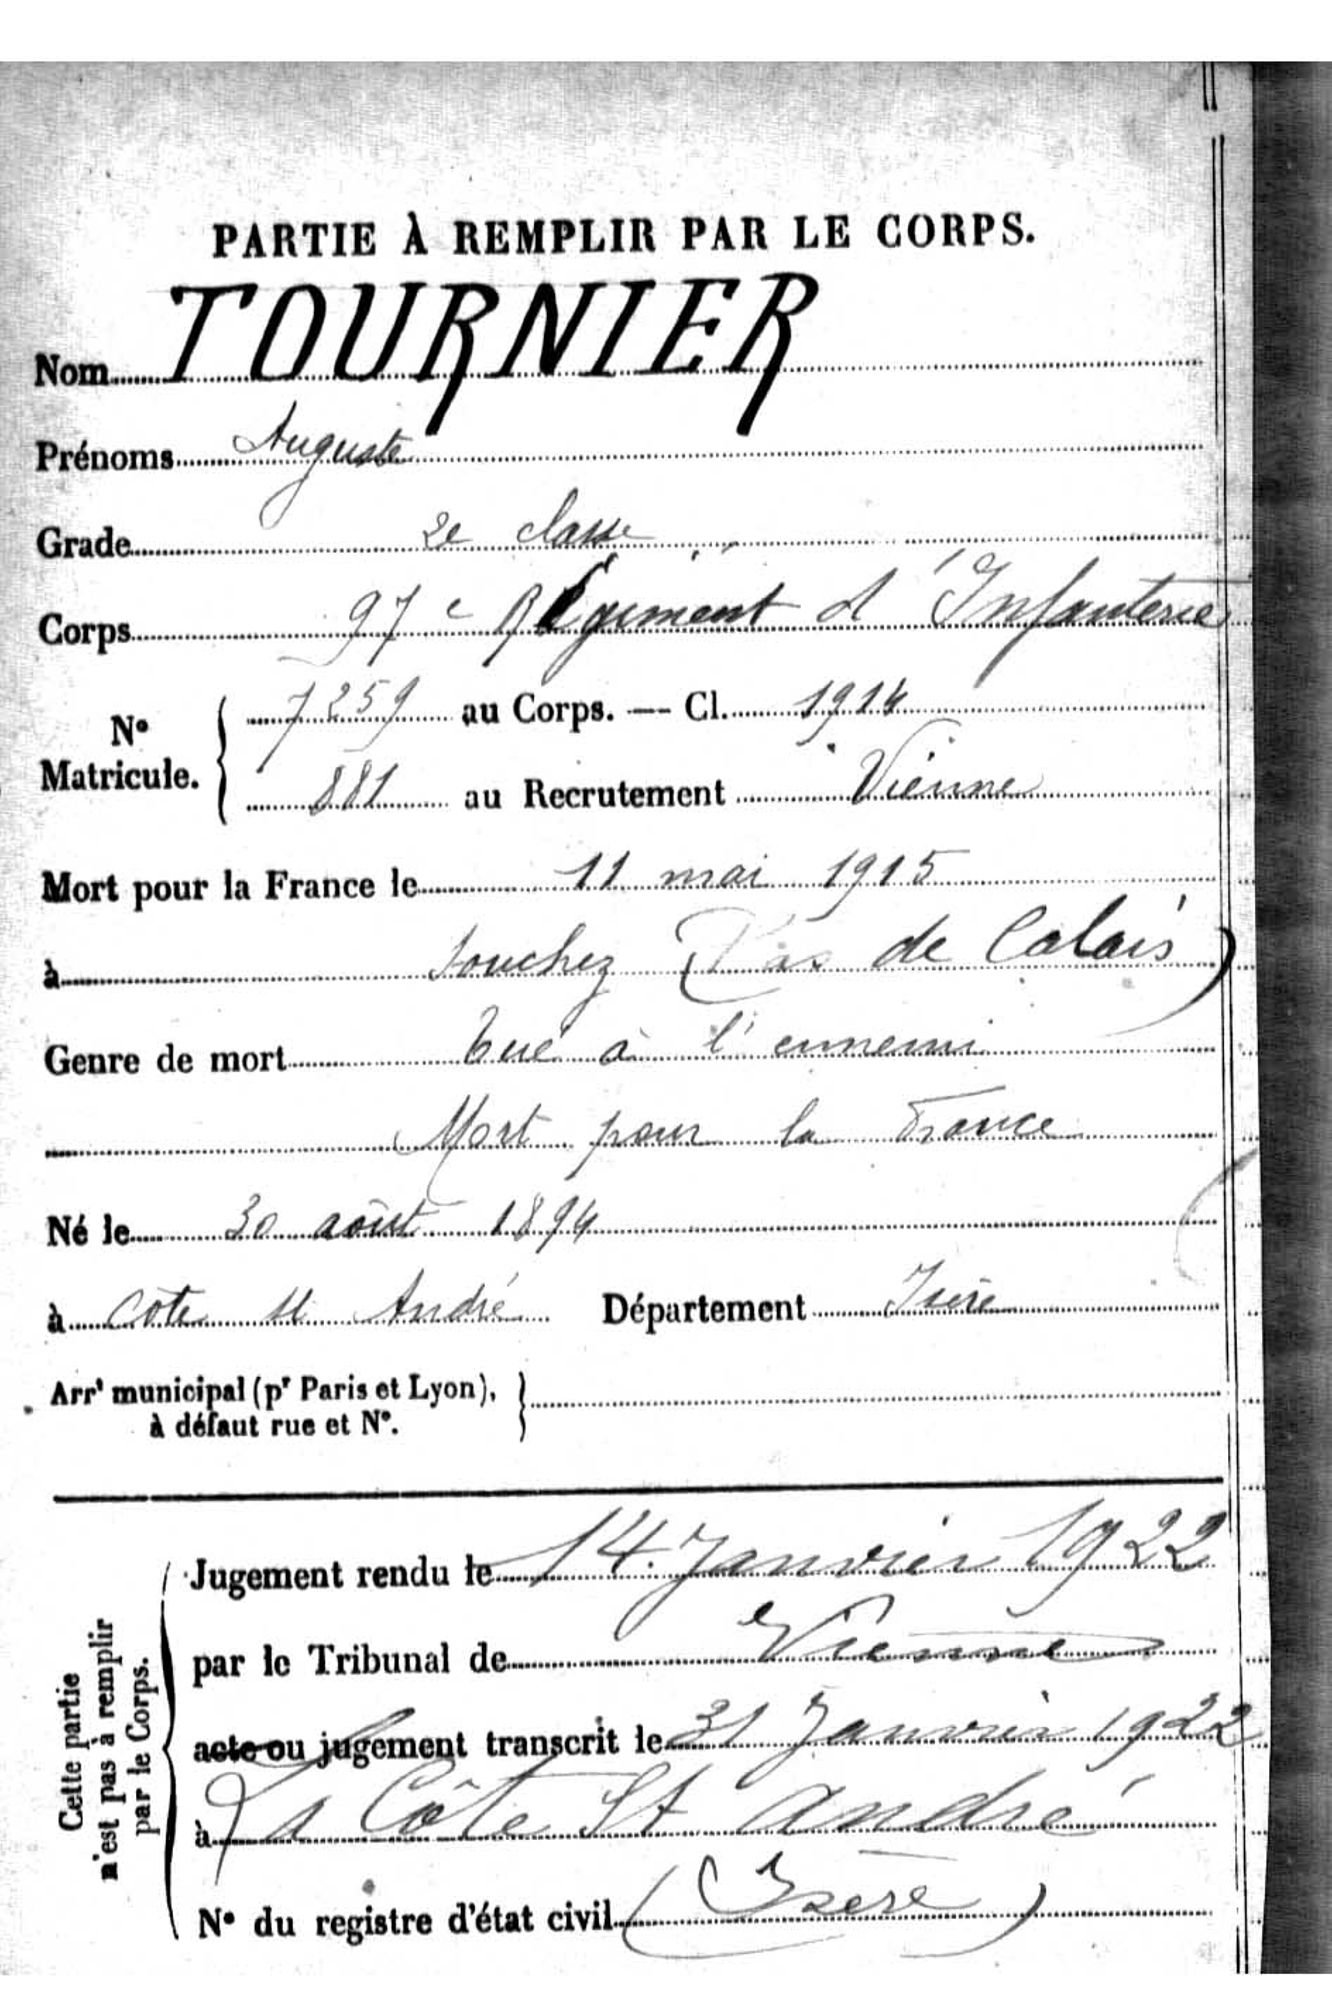 PARTIE À REMPLIR PAR LE CORPS.
Nom TOURNIER
Prénoms Auguste
Grade 2e classe
Corps 97e Régiment d'Infanterie
N° Matricule. 7259 au Corps. — Cl. 1914
881 au Recrutement Vienne
Mort pour la France le 11 mai 1915
à Souchez (Pas de Calais)
Genre de mort Tué à l'ennemi
Mort pour la France
Né le 30 août 1894
à Côte St André Département Isère
Arrt municipal (pr Paris et Lyon),
à défaut rue et N°.
Cette partie
n'est pas à remplir
par le Corps.
Jugement rendu le 14 Janvier 1922
par le Tribunal de Vienne
acte ou jugement transcrit le 31 Janvier 1922
à La Côte St André
N° du registre d'état civil (Isère)